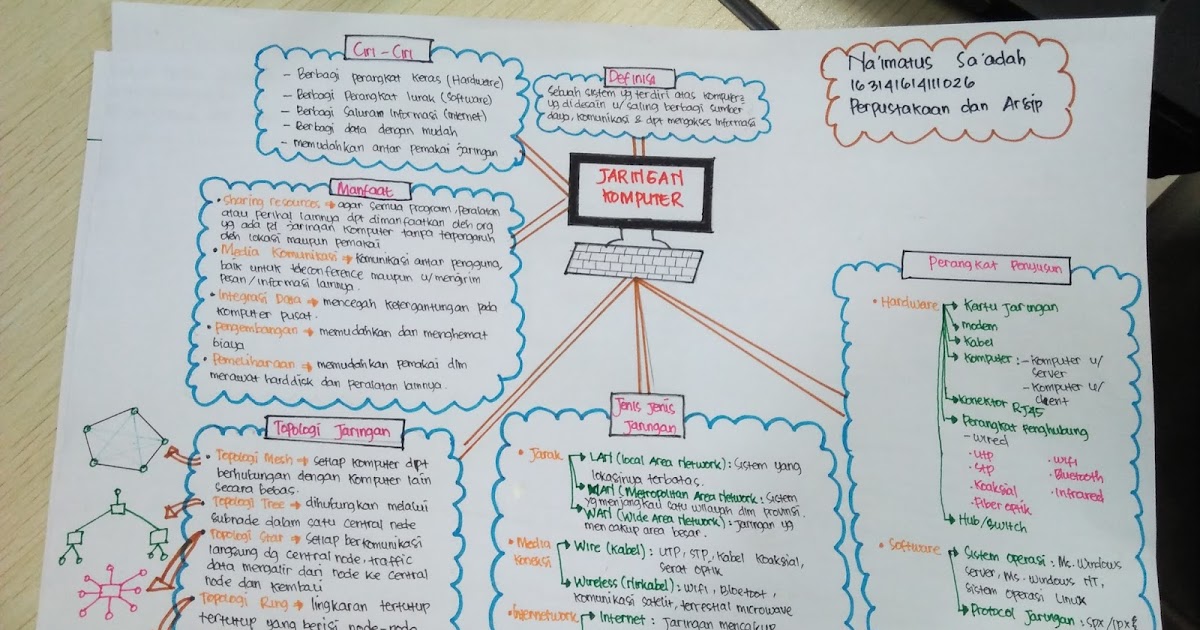 Ciri - Ciri
- Berbagi perangkat keras (Hardware)
- Berbagi Perangkat lunak (Software)
- Berbagi Saluran Informasi (Internet)
- Berbagi data dengan mudah
- memudahkan antar pemakai jaringan
Definisi
Sebuah sistem yg terdiri atas komputer2
yg didesain u/ saling berbagi sumber
daya, komunikasi & dpt mengakses informasi
Na'imatus Sa'adah
163141614111026
Perpustakaan dan Arsip
JARINGAN
KOMPUTER
Manfaat
• Sharing resources → agar semua program, peralatan
atau perihal lainnya dpt dimanfaatkan oleh org
yg ada pd jaringan komputer tanpa terpengaruh
oleh lokasi maupun pemakai
• Media Komunikasi → komunikasi antar pengguna,
baik untuk teleconference maupun u/ mengirim
pesan / informasi lainnya.
• Integrasi Data → mencegah ketergantungan pada
komputer pusat.
• Pengembangan → memudahkan dan menghemat
biaya
• Pemeliharaan → memudahkan pemakai dlm
merawat harddisk dan peralatan lainnya.
Topologi Jaringan
• Topologi Mesh → setiap komputer dpt
berhubungan dengan komputer lain
secara bebas.
• Topologi Tree → dihubungkan melalui
subnode dalam satu central node
• Topologi Star → setiap berkomunikasi
langsung dg central node, traffic
data mengalir dari node ke central
node dan kembali
• Topologi Ring → lingkaran tertutup
tertutup yang berisi node-node
Jenis Jenis
Jaringan
• Jarak
LAN (Local Area Network) : Sistem yang
lokasinya terbatas.
MAN (Metropolitan Area Network : Sistem
yg menjangkau satu wilayah dlm provinsi.
WAN (Wide Area Network) : Jaringan yg
mencakup area besar.
• Media
Koneksi
Wire (Kabel) : UTP, STP, Kabel Koaksial,
Serat optik
Wireless (Nirkabel) : Wifi, Bluetoot,
komunikasi satelit, terrestrial microwave
• Internetwork
Internet : Jaringan mencakup
Perangkat Penyusun
• Hardware
Kartu Jaringan
modem
Kabel
Komputer : - Komputer u/
server
- Komputer u/
client
Konektor RJ45
Perangkat Penghubung
- Wired
• Utp
• Stp
• Koaksial
• Fiber optik
• Wifi
• Bluetooth
• Infrared
Hub/Switch
• Software
Sistem operasi : Ms. Windows
server, Ms. Windows NT,
Sistem operasi Linux
Protocol Jaringan : SPX / IPX &